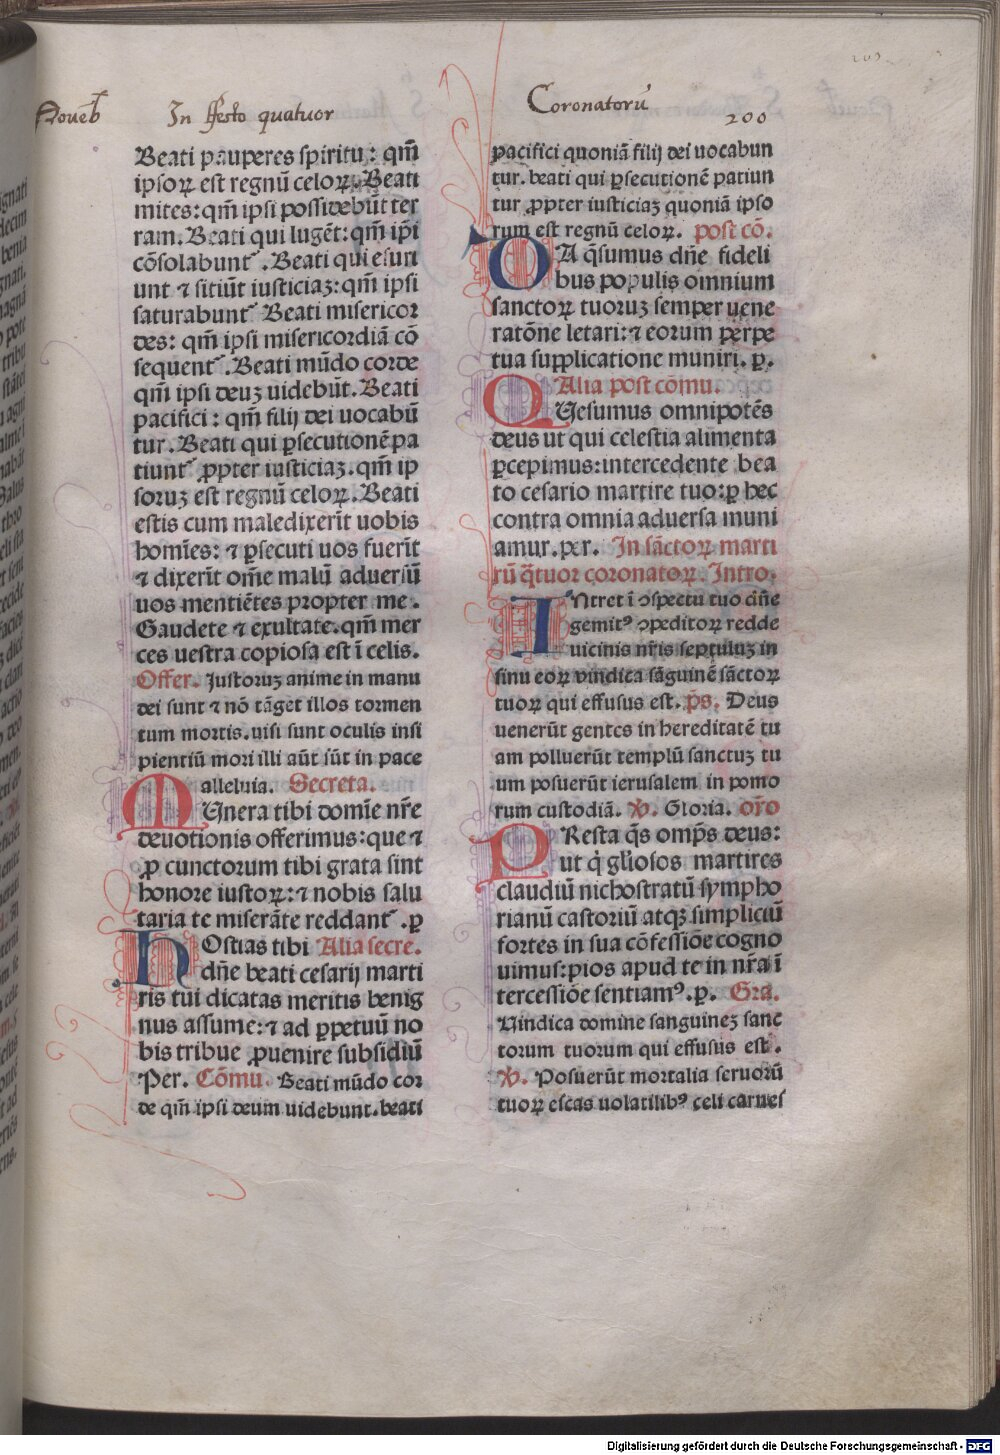 Noueb In festo quatuor Coronatorū
200
Beati pauperes spiritu: qm̄
ipsoꝝ est regnū celoꝝ. Beati
mites: qm̄ ipsi possidebūt ter
ram. Beati qui lugēt: qm̄ ip̄i
cōsolabunt᷑. Beati qui esuri
unt ⁊ sitiūt iusticiaꝫ: qm̄ ipsi
saturabunt᷑ Beati misericor
des: qm̄ ipsi misericordiā cō
sequent᷑. Beati mūdo corde
qm̄ ipsi deuꝫ uidebūt. Beati
pacifici: qm̄ filij dei uocabū
tur. Beati qui ꝑsecutionē pa
tiunt᷑ ꝓpter iusticiaꝫ. qm̄ ip
soruꝫ est regnū celoꝝ. Beati
estis cum maledixerīt uobis
homīes: ⁊ ꝑsecuti uos fuerīt
⁊ dixerīt om̄e malū aduersū
uos mentiētes propter me.
Gaudete ⁊ exultate. qm̄ mer
ces uestra copiosa est ī celis.
Offer. Iustoruꝫ anime in manu
dei sunt ⁊ nō tāget illos tormen
tum mortis. uisi sunt oculis insi
pientiū mori illi aūt sūt in pace
alleluia. Secreta.
MUnera tibi domīe nr̄e
deuotionis offerimus: que ⁊
ꝓ cunctorum tibi grata sint
honore iustoꝝ: ⁊ nobis salu
taria te miserāte reddant᷑. ꝑ
HOstias tibi Alia secre.
dn̄e beati cesarij marti
ris tui dicatas meritis benig
nus assume: ⁊ ad ꝑpetuū no
bis tribue ꝓuenire subsidiū
Per. Cōmu. Beati mūdo cor
de qm̄ ipsi deum uidebunt. beati
pacifici quoniā filij dei uocabun
tur. beati qui ꝑsecutionē patiun
tur ꝓpter iusticiaꝫ quoniā ipso
rum est regnū celoꝝ. post cō.
DA q̄sumus dn̄e fideli
bus populis omnium
sanctoꝝ tuoruꝫ semper uene
ratōne letari: ⁊ eorum perpe
tua supplicatione muniri. ꝑ.
Alia post cōmu.
QUesumus omnipotēs
deus ut qui celestia alimenta
ꝑcepimus: intercedente bea
to cesario martire tuo: ꝑ hec
contra omnia aduersa muni
amur. per. In sāctoꝝ marti
rū q̄tuor coronatoꝝ. Intro.
INtret ī ↄspectu tuo dn̄e
gemitꝰ ↄpeditoꝝ redde
uicinis nr̄is septuluꝫ in
sinu eoꝝ vindica sāguinē sāctoꝝ
tuoꝝ qui effusus est. p̄s. Deus
uenerūt gentes in hereditatē tu
am polluerūt templū sanctuꝫ tu
um posuerūt ierusalem in pomo
rum custodiā. ℣. Gloria. or̄o
PResta q̄s omp̄s deus:
ut q̇ gl̄iosos martires
claudiū nichostratū sympho
rianū castoriū atqꝫ simpliciū
fortes in sua cōfessiōe cogno
uimus: pios apud te in nr̄a ī
tercessiōe sentiamꝰ. ꝑ. Gra.
Vindica domine sanguineꝫ sanc
torum tuorum qui effusus est.
℣. Posuerūt mortalia seruorū
tuoꝝ escas uolatilibꝰ celi carnes
Digitalisierung gefördert durch die Deutsche Forschungsgemeinschaft - DFG